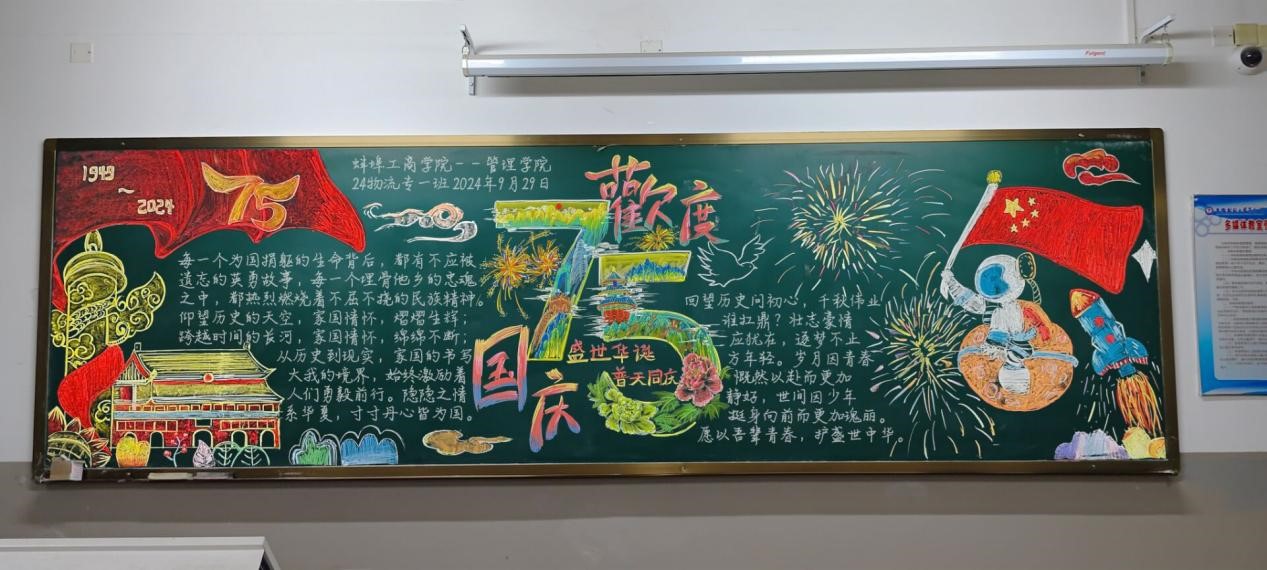 1949
~
2024
75
蚌埠工商学院——管理学院
24物流专一班2024年9月29日
每一个为国捐躯的生命背后，都有不应被
遗忘的英勇故事，每一个埋骨他乡的忠魂
之中，都热烈燃烧着不屈不挠的民族精神。
仰望历史的天空，家国情怀，熠熠生辉；
跨越时间的长河，家国情怀，绵绵不断；
从历史到现实，家国的书写
大我的境界，始终激励着
人们勇毅前行。隐隐之情
系华夏，寸寸丹心皆为国。
歡度
75
国庆
盛世华诞
普天同庆
回望历史问初心，千秋伟业
谁扛鼎？壮志豪情
应犹在，逐梦不止
方年轻。岁月因青春
慨然以赴而更加
静好，世间因少年
挺身向前而更加瑰丽。
愿以吾辈青春，护盛世中华。
Fulgent
多媒体教室